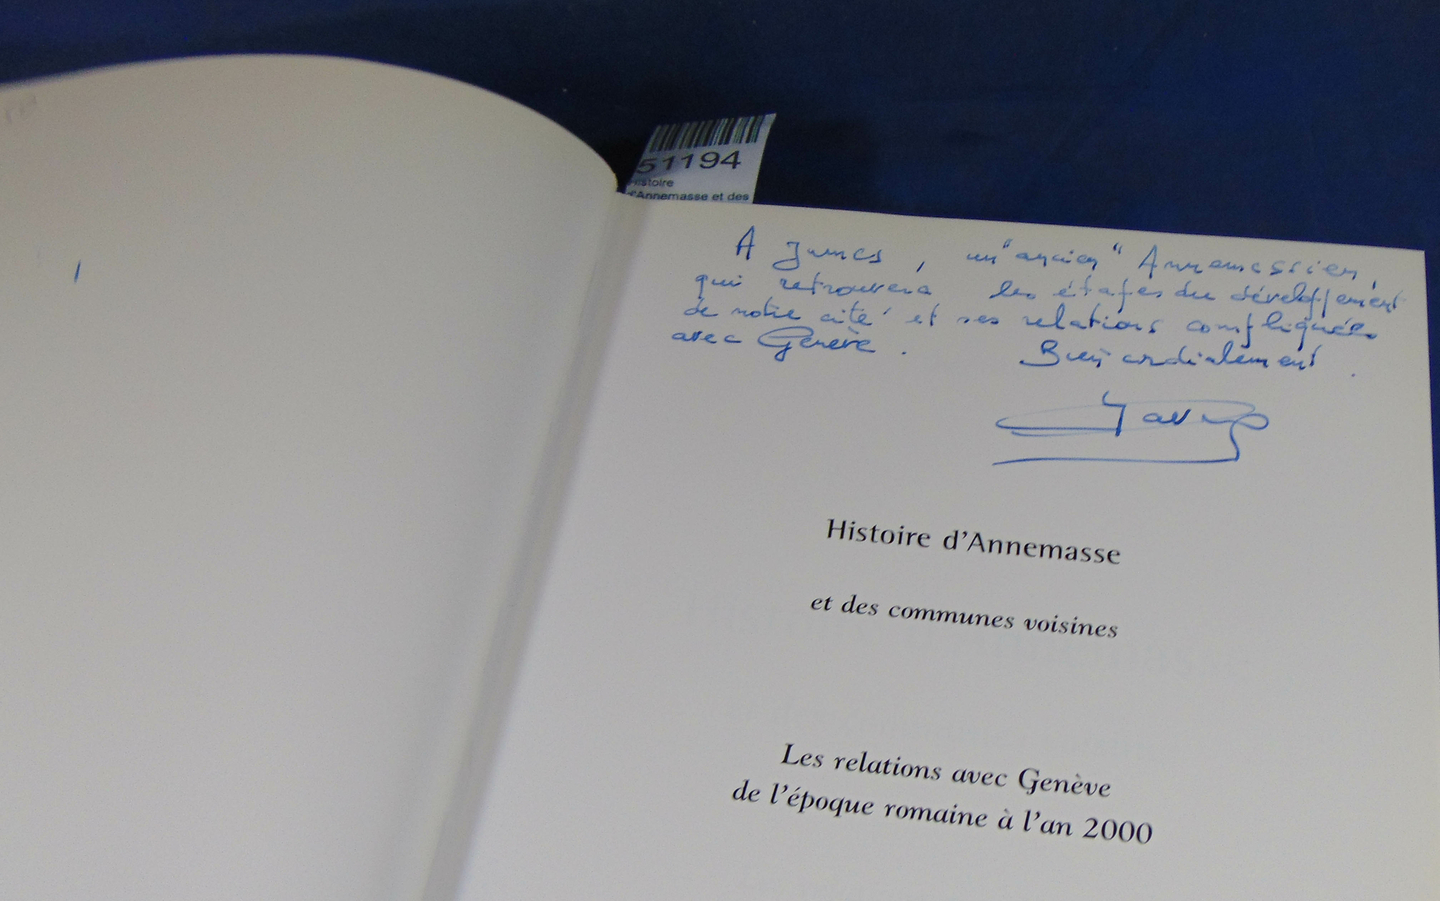 51194
Histoire
d'Annemasse et des
A James, un "ancien" Annemassien,
qui retrouvera les étapes du développement
de notre cité et ses relations compliquées
avec Genève. Bien cordialement.
Histoire d'Annemasse
et des communes voisines
Les relations avec Genève
de l'époque romaine à l'an 2000